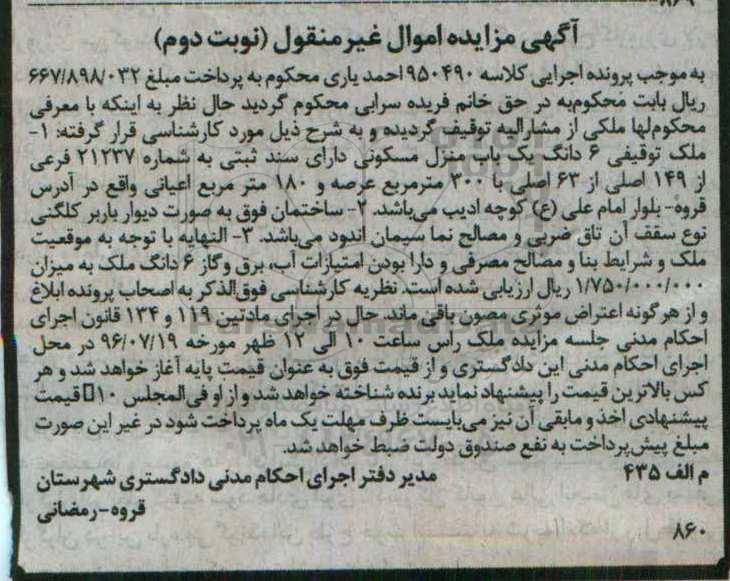 ۸۶۹
آگهی مزایده اموال غیر منقول (نوبت دوم)
به موجب پرونده اجرایی کلاسه ۹۵۰۴۹۰ احمد یاری محکوم به پرداخت مبلغ ۶۶۷/۸۹۸/۰۳۲
ریال بابت محکوم‌به در حق خانم فریده سرابی محکوم گردید حال نظر به اینکه با معرفی
محکوم‌لها ملکی از مشارالیه توقیف گردیده و به شرح ذیل مورد کارشناسی قرار گرفته: ۱-
ملک توقیفی ۶ دانگ یک باب منزل مسکونی دارای سند ثبتی به شماره ۲۱۲۳۷ فرعی
از ۱۴۹ اصلی از ۶۳ اصلی با ۳۰۰ مترمربع عرصه و ۱۸۰ متر مربع اعیانی واقع در آدرس
قروه- بلوار امام علی (ع) کوچه ادیب می‌باشد. ۲- ساختمان فوق به صورت دیوار باربر کلگنی
نوع سقف آن تاق ضربی و مصالح نما سیمان اندود می‌باشد. ۳- النهایه با توجه به موقعیت
ملک و شرایط بنا و مصالح مصرفی و دارا بودن امتیازات آب، برق وگاز ۶ دانگ ملک به میزان
۱/۷۵۰/۰۰۰/۰۰۰ ریال ارزیابی شده است. نظریه کارشناسی فوق‌الذکر به اصحاب پرونده ابلاغ
و از هرگونه اعتراض موثری مصون باقی ماند. حال در اجرای مادتین ۱۱۹ و ۱۳۴ قانون اجرای
احکام مدنی جلسه مزایده ملک راس ساعت ۱۰ الی ۱۲ ظهر مورخه ۹۶/۰۷/۱۹ در محل
اجرای احکام مدنی این دادگستری و از قیمت فوق به عنوان قیمت پایه آغاز خواهد شد و هر
کس بالاترین قیمت را پیشنهاد نماید برنده شناخته خواهد شد و از او فی‌المجلس ۱۰ قیمت
پیشنهادی اخذ و مابقی آن نیز می‌بایست ظرف مهلت یک ماه پرداخت شود در غیر این صورت
مبلغ پیش‌پرداخت به نفع صندوق دولت ضبط خواهد شد.
م الف ۴۳۵ مدیر دفتر اجرای احکام مدنی دادگستری شهرستان
قروه- رمضانی
۸۶۰